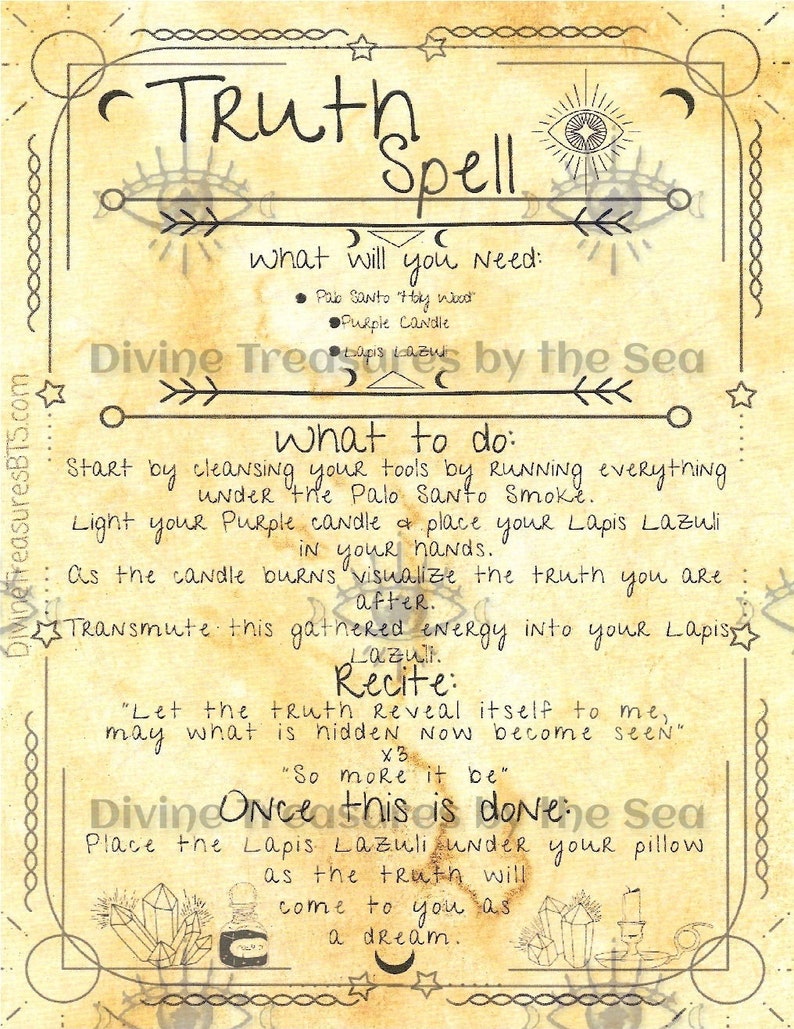 Truth
Spell
What will you need:
• Palo Santo "Holy Wood"
• Purple Candle
• Lapis Lazuli
Divine Treasures by the Sea
What to do:
Start by cleansing your tools by running everything
under the Palo Santo Smoke.
Light your Purple candle & place your Lapis Lazuli
in your hands.
As the candle burns visualize the truth you are
after.
Transmute this gathered energy into your Lapis
Lazuli.
Recite:
"Let the truth reveal itself to me,
may what is hidden now become seen"
x3
"So more it be"
Divine Treasures by the Sea
Once this is done:
Place the Lapis Lazuli under your pillow
as the truth will
come to you as
a dream.
DivineTreasuresBTS.com